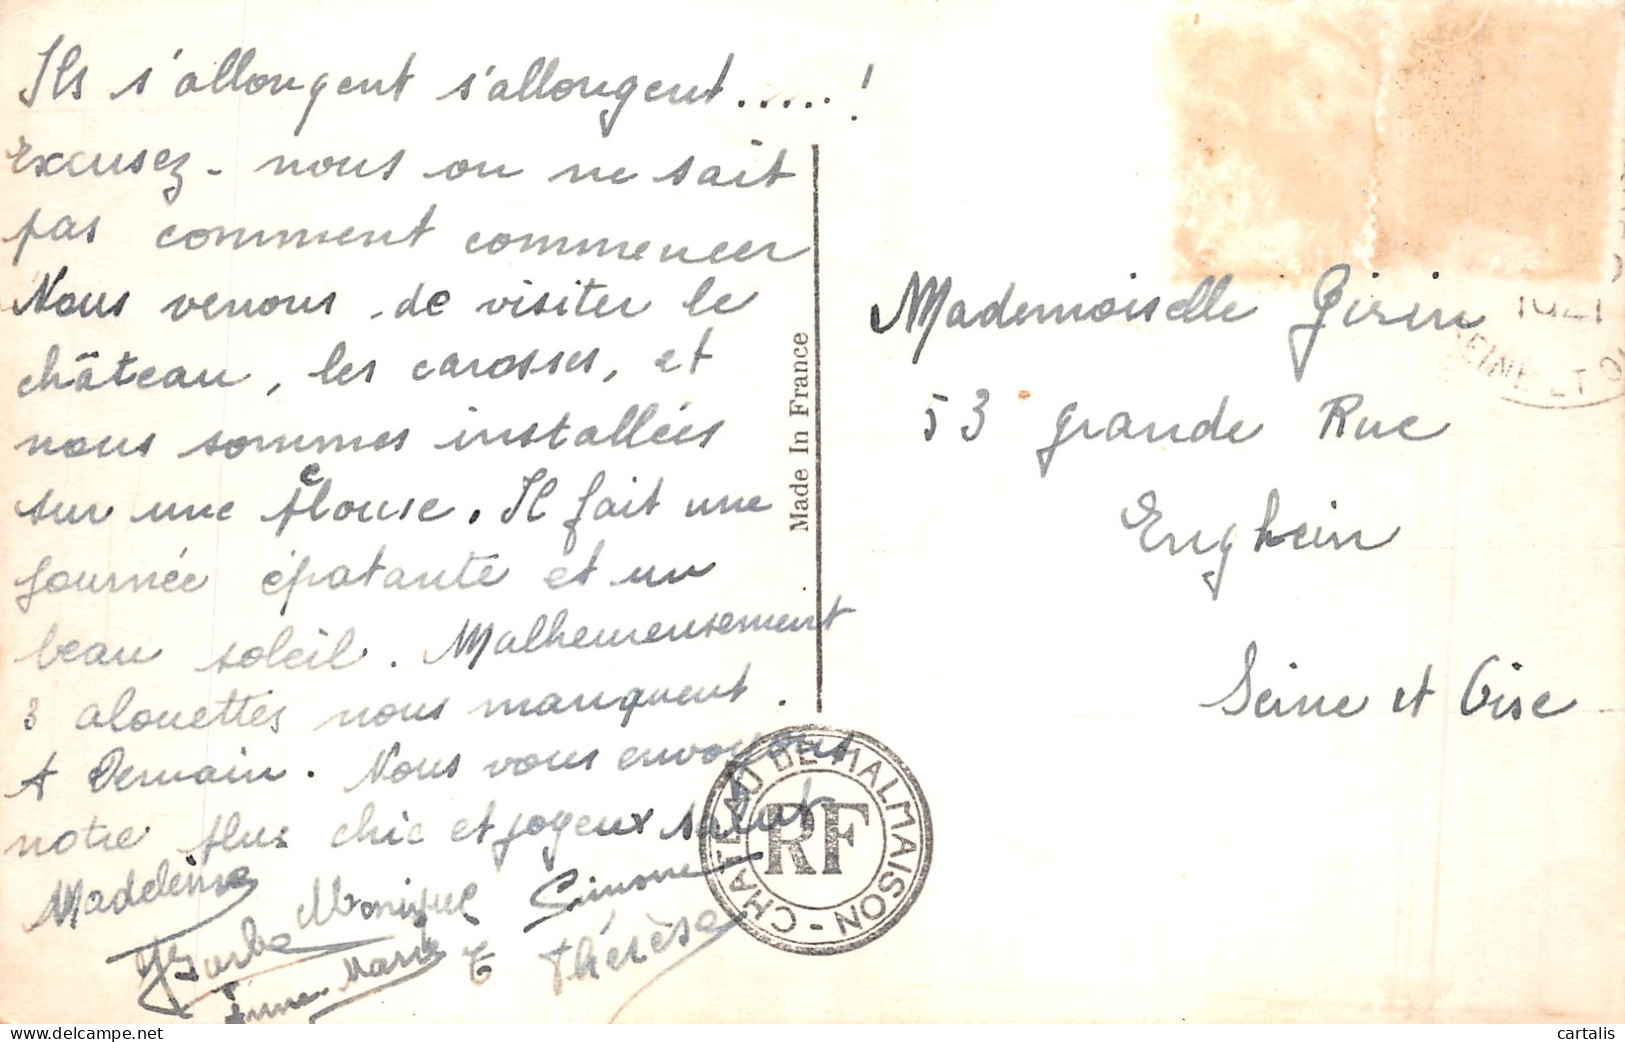 Ils s'allongent s'allongent.....!
Excusez-nous on ne sait
pas comment commencer
Nous venons de visiter le
château, les carosses, et
nous sommes installées
sur une pelouse. Il fait une
journée épatante et un
beau soleil. Malheureusement
3 alouettes nous manquent.
A Demain. Nous vous envoyons
notre plus chic et joyeux salut
Madeleine
Monique Simone
Anne-Marie Thérèse
Made In France
CHATEAU DE MALMAISON -
RF
Mademoiselle Girin
53 grande Rue
Enghein
Seine et Oise
SEINE ET O
cartalis